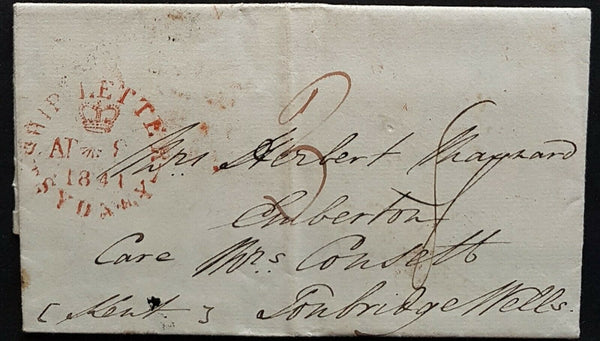 SHIP LETTER
AP 8
1841
SYDNEY
3
Mrs Herbert Maynard
Emberton
Care Mrs. Consett
[Kent.] Tonbridge Wells.